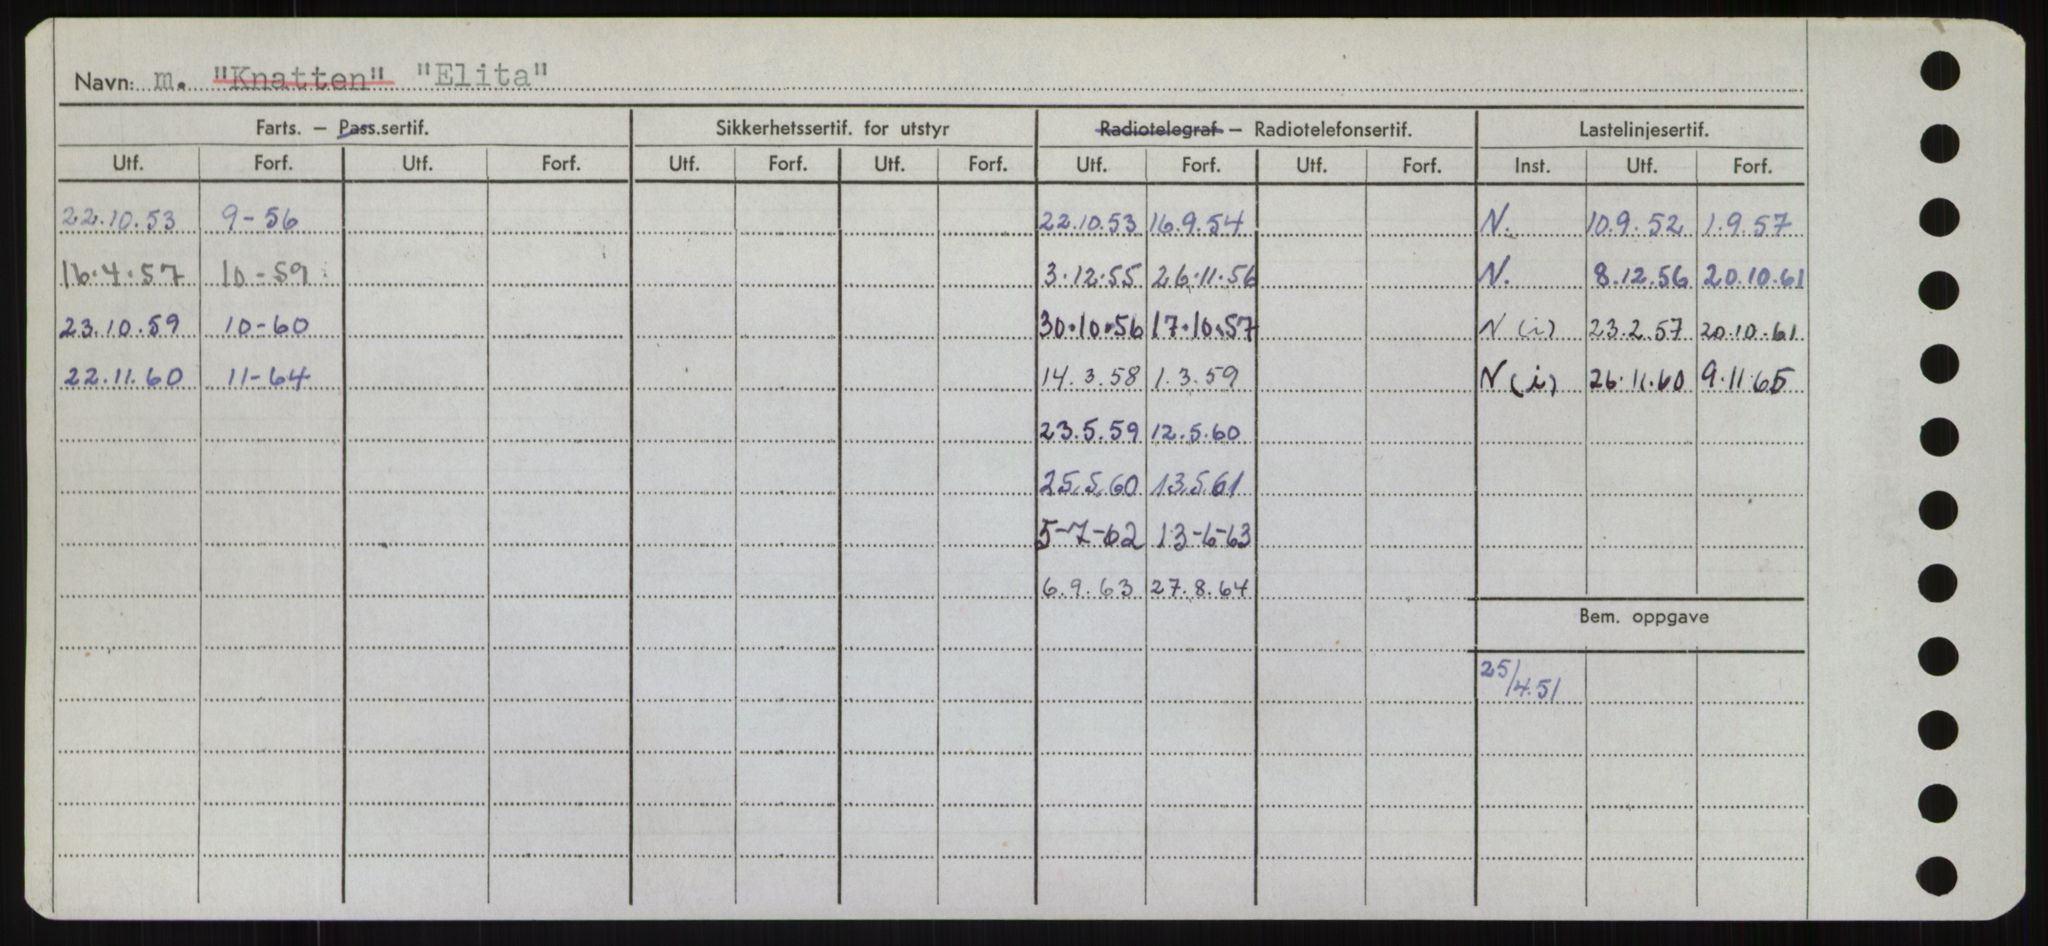 Navn: m. "Knatten" "Elita"
Farts. – Pass.sertif. Sikkerhetssertif. for utstyr Radiotelegraf – Radiotelefonsertif. Lastelinjesertif.
Utf. Forf. Utf. Forf. Utf. Forf. Utf. Forf. Utf. Forf. Utf. Forf. Inst. Utf. Forf.
22.10.53 9-56 22.10.53 16.9.54 N. 10.9.52 1.9.57
16.4.57 10-59 3.12.55 26.11.56 N. 8.12.56 20.10.61
23.10.59 10-60 30.10.56 17.10.57 N (i) 23.2.57 20.10.61
22.11.60 11-64 14.3.58 1.3.59 N (i) 26.11.60 9.11.65
23.5.59 12.5.60
25.5.60 13.5.61
5-7-62 13-6-63
6.9.63 27.8.64
Bem. oppgave
25/4.51